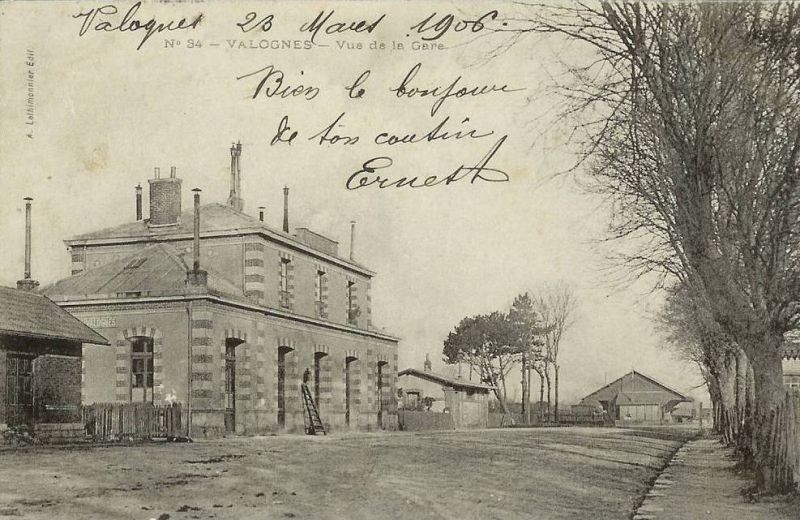 Valognes 23 Mars 1906.
Nº 34 – VALOGNES – Vue de la Gare
Bien le bonjour
de ton coutin
Ernest
A. Lathimonnier Edit.